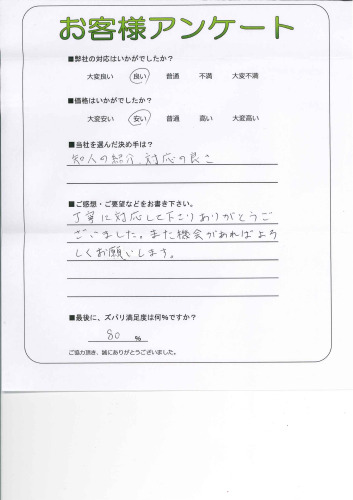 お客様アンケート
■弊社の対応はいかがでしたか？
大変良い 良い 普通 不満 大変不満
■価格はいかがでしたか？
大変安い 安い 普通 高い 大変高い
■当社を選んだ決め手は？
知人の紹介、対応の良さ
■ご感想・ご要望などをお書き下さい。
丁寧に対応して下さりありがとうご
ざいました。また機会があればよろ
しくお願いします。
■最後に、ズバリ満足度は何％ですか？
80 %
ご協力頂き、誠にありがとうございました。